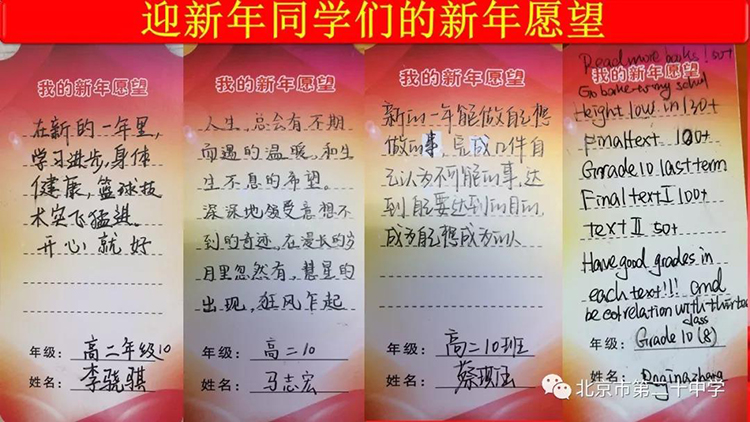 迎新年同学们的新年愿望
我的新年愿望
在新的一年里,
学习进步,身体
健康,篮球技
术突飞猛进.
开心就好
年级: 高二年级10
姓名: 李骁骐
我的新年愿望
人生,总会有不期
而遇的温暖,和生
生不息的希望。
深深地领受意想不
到的奇迹,在漫长的岁
月里忽然有,彗星的
出现,狂风乍起
年级: 高二10
姓名: 马志宏
我的新年愿望
新的一年能做自己想
做的事,完成几件自
己认为不可能的事,达
到自己要达到的目的,
成为自己想成为的人
年级: 高二10班
姓名: 蔡
Read more books! 50+
Go bake to my school
我的新年愿望
Height low in 130+
Final text 100+
Grade 10 last term
Final text I 100+
text II 50+
Have good grades in
each text!!! and
be eotrelation with this
class
年级: Grade 10 (8)
姓名:
北京市第二十中学